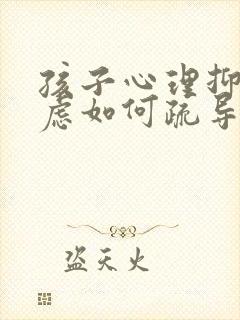 孩子心理抑
虑如何疏导
盗天火